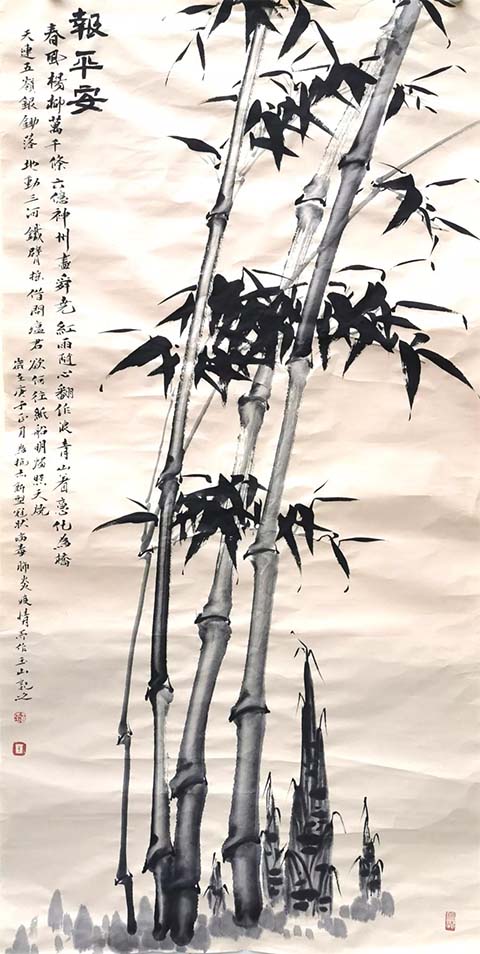 報平安
春風楊柳萬千條六億神州盡舜堯紅雨隨心翻作浪青山着意化為橋
天連五嶺銀鋤落地動三河鐵臂搖借問瘟君欲何往紙船明燭照天燒
歲在庚子正月為抗击新型冠狀病毒肺炎疫情而作玉山記之